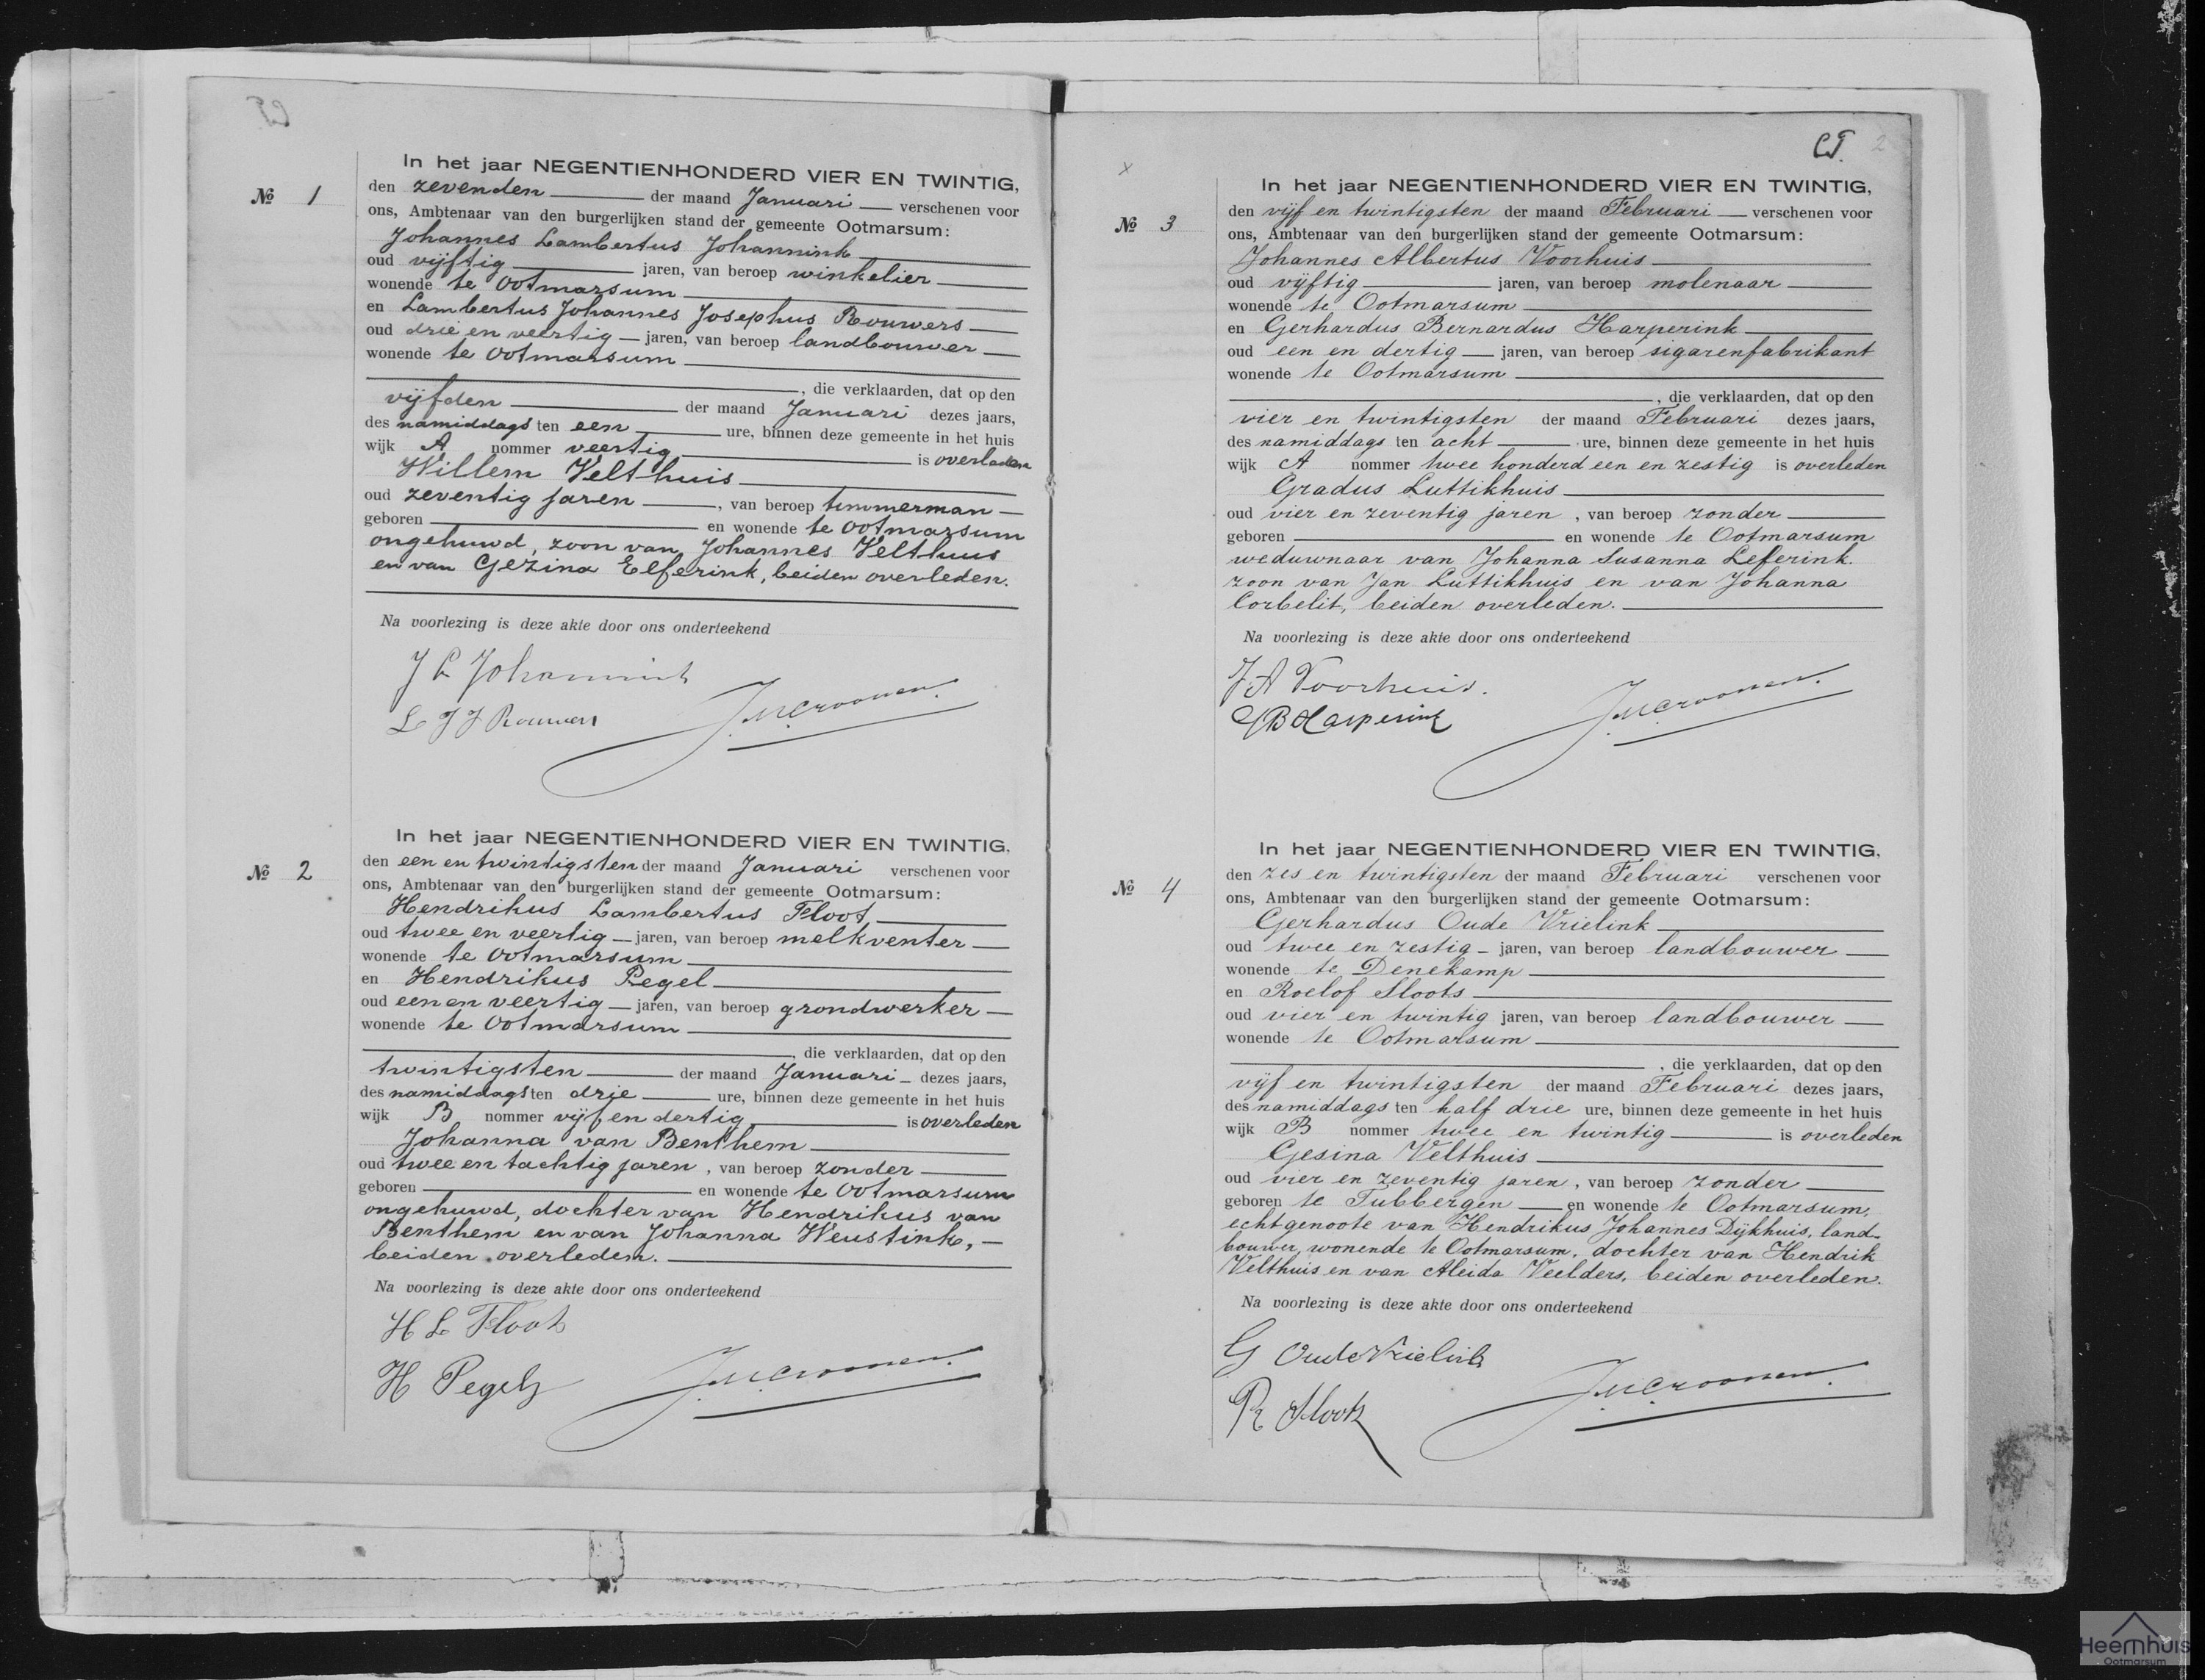 In het jaar NEGENTIENHONDERD VIER EN TWINTIG,
Nº 1
den zevenden der maand Januari verschenen voor
ons, Ambtenaar van den burgerlijken stand der gemeente Ootmarsum:
Johannes Lambertus Johannink
oud vijftig jaren, van beroep winkelier
wonende te Ootmarsum
en Lambertus Johannes Josephus Rouwers
oud drie en veertig jaren, van beroep landbouwer
wonende te Ootmarsum
, die verklaarden, dat op den
vijfden der maand Januari dezes jaars,
des namiddags ten een ure, binnen deze gemeente in het huis
wijk A nommer veertig is overleden
Willem Velthuis
oud zeventig jaren, van beroep timmerman
geboren en wonende te Ootmarsum
ongehuwd, zoon van Johannes Velthuis
en van Gezina Elferink, beiden overleden.
Na voorlezing is deze akte door ons onderteekend
J L Johannink
L J J Rouwers
J.M.Croonen.
In het jaar NEGENTIENHONDERD VIER EN TWINTIG,
Nº 2
den een en twintigsten der maand Januari verschenen voor
ons, Ambtenaar van den burgerlijken stand der gemeente Ootmarsum:
Hendrikus Lambertus Floot,
oud twee en veertig jaren, van beroep melkventer
wonende te Ootmarsum
en Hendrikus Pegel
oud een en veertig jaren, van beroep grondwerker
wonende te Ootmarsum
, die verklaarden, dat op den
twintigsten der maand Januari dezes jaars,
des namiddags ten drie ure, binnen deze gemeente in het huis
wijk B nommer vijf en dertig is overleden
Johanna van Benthem
oud twee en tachtig jaren, van beroep zonder
geboren en wonende te Ootmarsum
ongehuwd, dochter van Hendrikus van
Benthem en van Johanna Weustink,
beiden overleden.
Na voorlezing is deze akte door ons onderteekend
H L Floot
H Pegel
J.M.Croonen.
CT. 2
In het jaar NEGENTIENHONDERD VIER EN TWINTIG,
Nº 3
den vijf en twintigsten der maand Februari verschenen voor
ons, Ambtenaar van den burgerlijken stand der gemeente Ootmarsum:
Johannes Albertus Voorhuis
oud vijftig jaren, van beroep molenaar
wonende te Ootmarsum
en Gerhardus Bernardus Harperink
oud een en dertig jaren, van beroep sigarenfabrikant
wonende te Ootmarsum
, die verklaarden, dat op den
vier en twintigsten der maand Februari dezes jaars,
des namiddags ten acht ure, binnen deze gemeente in het huis
wijk A nommer twee honderd een en zestig is overleden
Gradus Luttikhuis
oud vier en zeventig jaren, van beroep zonder
geboren en wonende te Ootmarsum
weduwnaar van Johanna Susanna Leferink.
zoon van Jan Luttikhuis en van Johanna
Corbelit, beiden overleden.
Na voorlezing is deze akte door ons onderteekend
J A Voorhuis.
G B Harperink
J.M.Croonen.
In het jaar NEGENTIENHONDERD VIER EN TWINTIG,
Nº 4
den zes en twintigsten der maand Februari verschenen voor
ons, Ambtenaar van den burgerlijken stand der gemeente Ootmarsum:
Gerhardus Oude Vrielink
oud twee en zestig jaren, van beroep landbouwer
wonende te Denekamp
en Roelof Sloots
oud vier en twintig jaren, van beroep landbouwer
wonende te Ootmarsum
, die verklaarden, dat op den
vijf en twintigsten der maand Februari dezes jaars,
des namiddags ten half drie ure, binnen deze gemeente in het huis
wijk B nommer twee en twintig is overleden
Gesina Velthuis
oud vier en zeventig jaren, van beroep zonder
geboren te Tubbergen en wonende te Ootmarsum,
echtgenoote van Hendrikus Johannes Dijkhuis, land-
bouwer, wonende te Ootmarsum, dochter van Hendrik
Velthuis en van Aleida Veelders, beiden overleden.
Na voorlezing is deze akte door ons onderteekend
G Oude Vrielink
R Sloots
J.M.Croonen.
Heemhuis
Ootmarsum